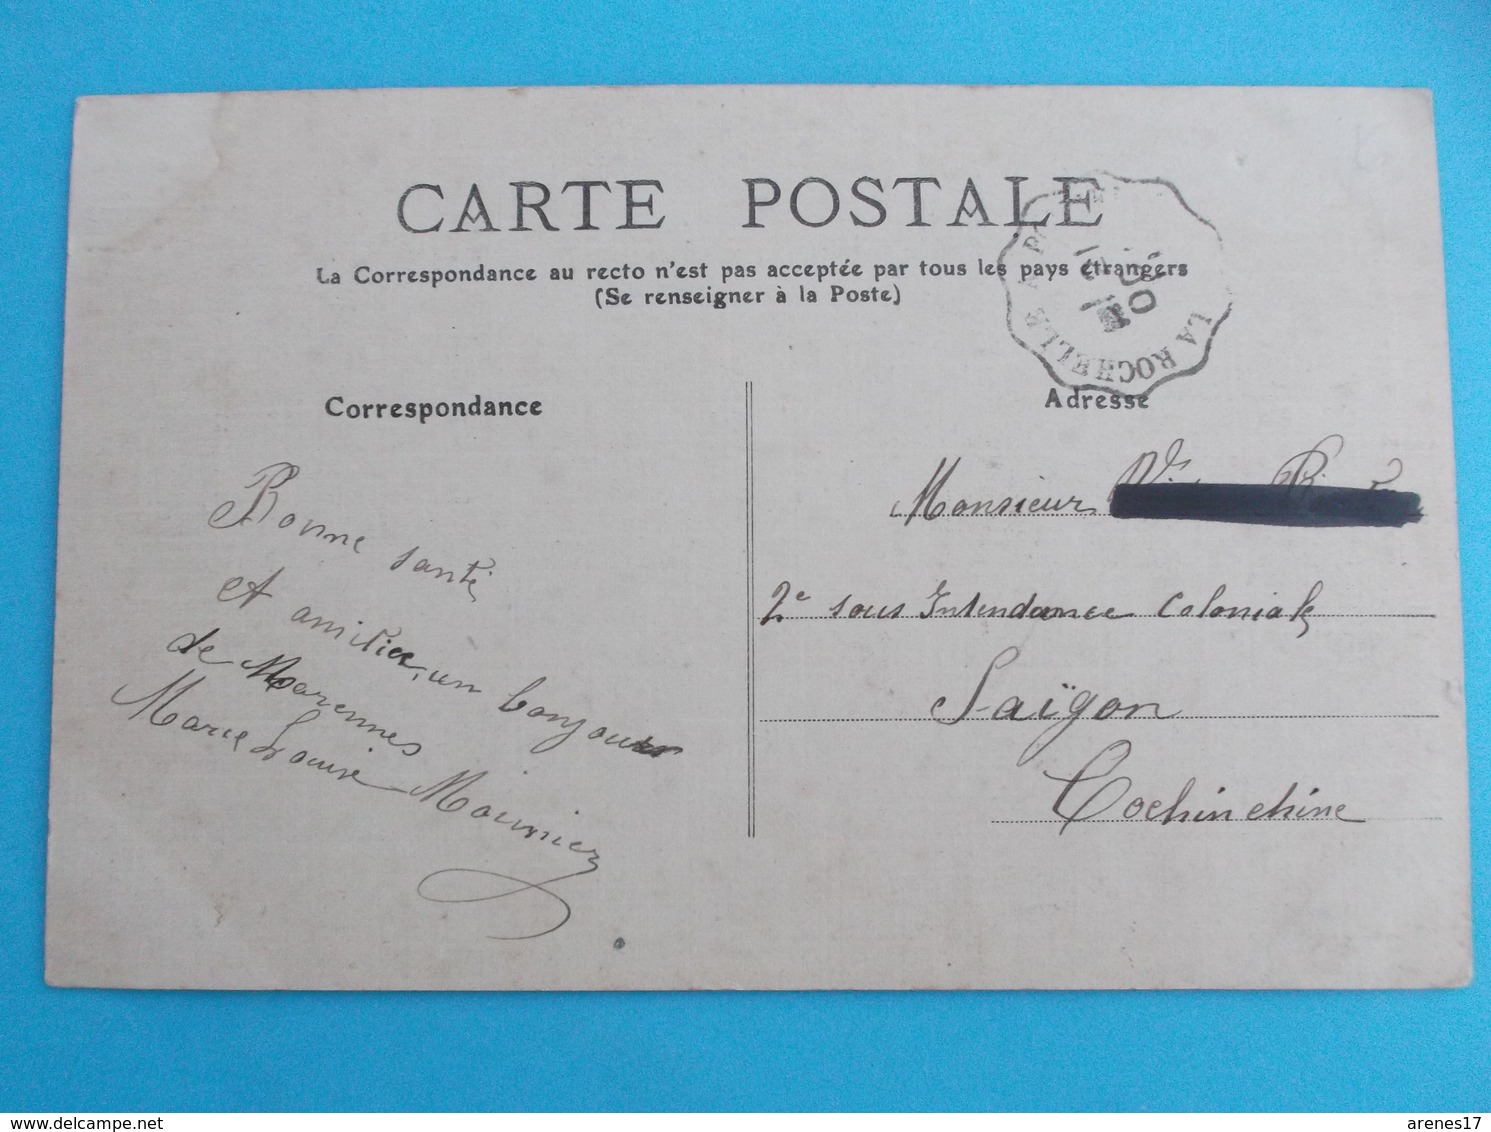 CARTE POSTALE
La Correspondance au recto n'est pas acceptée par tous les pays étrangers
(Se renseigner à la Poste)
LA ROCHELLE A
Correspondance
Adresse
Bonne santé
et amitiés, un bonjour
de Marennes
Marie Louise
Monsieur
2e sous Intendance Coloniale
Saïgon
Cochinchine
delcampe.net
arenes17